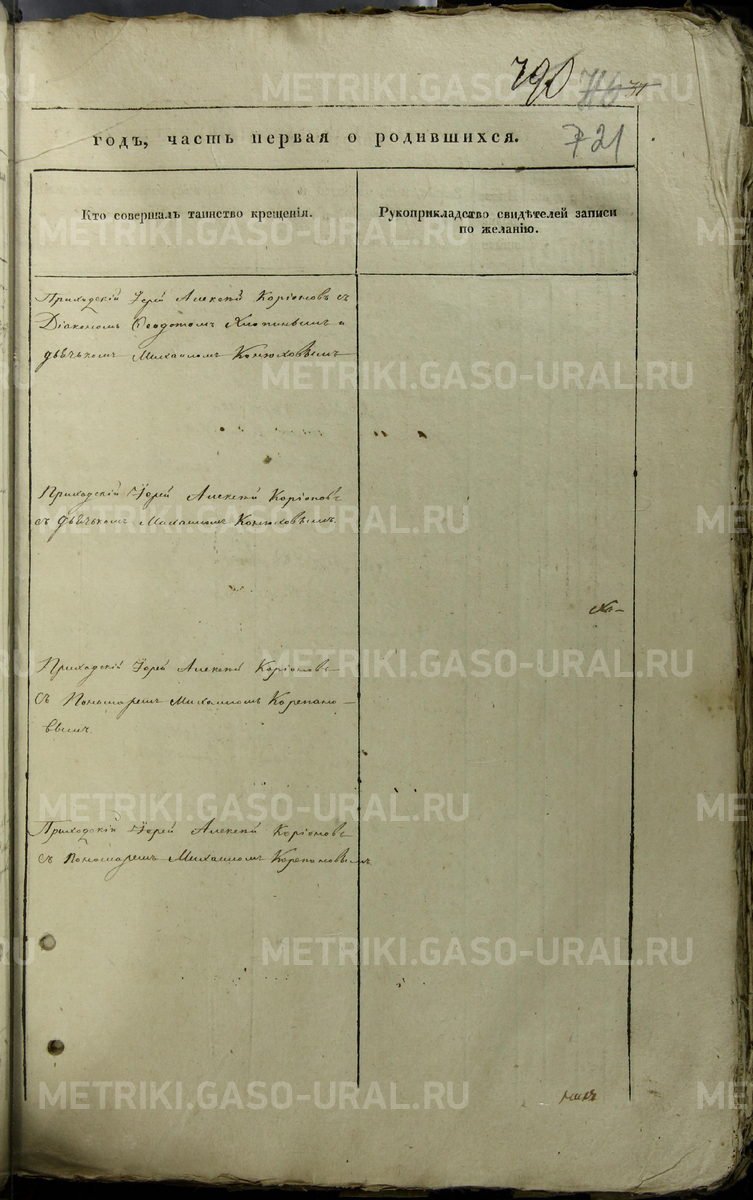 METRIKI.GASO-URAL.RU
790 716
годъ, часть первая о родившихся.
721
Кто совершалъ таинство крещенія.
Рукоприкладство свидѣтелей записи
по желанію.
Приходскій Іерей Алексѣй Коріоновъ съ
Діакономъ Ѳеодотомъ и
дьячькомъ Михаиломъ Конюховымъ
Приходскій Іерей Алексѣй Коріоновъ
съ дьячькомъ Михаиломъ Конюховымъ
Приходскій Іерей Алексѣй Коріоновъ
съ Пономаремъ Михаиломъ Корепано-
вымъ
Приходскій Іерей Алексѣй Коріоновъ
съ Пономаремъ Михаиломъ Корепановымъ